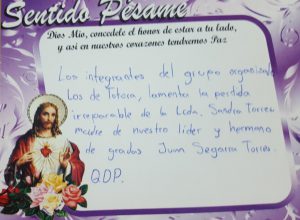 Sentido Pésame
Dios Mio, concedele el honor de estar a tu lado,
y asi en nuestros corazones tendremos Paz
Los integrantes del grupo organizado
Los de Totora, lamenta la perdida
irreparable de la Lcda. Sandra Torres
madre de nuestro líder y hermano
de grados Juan Segarra Torres.
QDP.